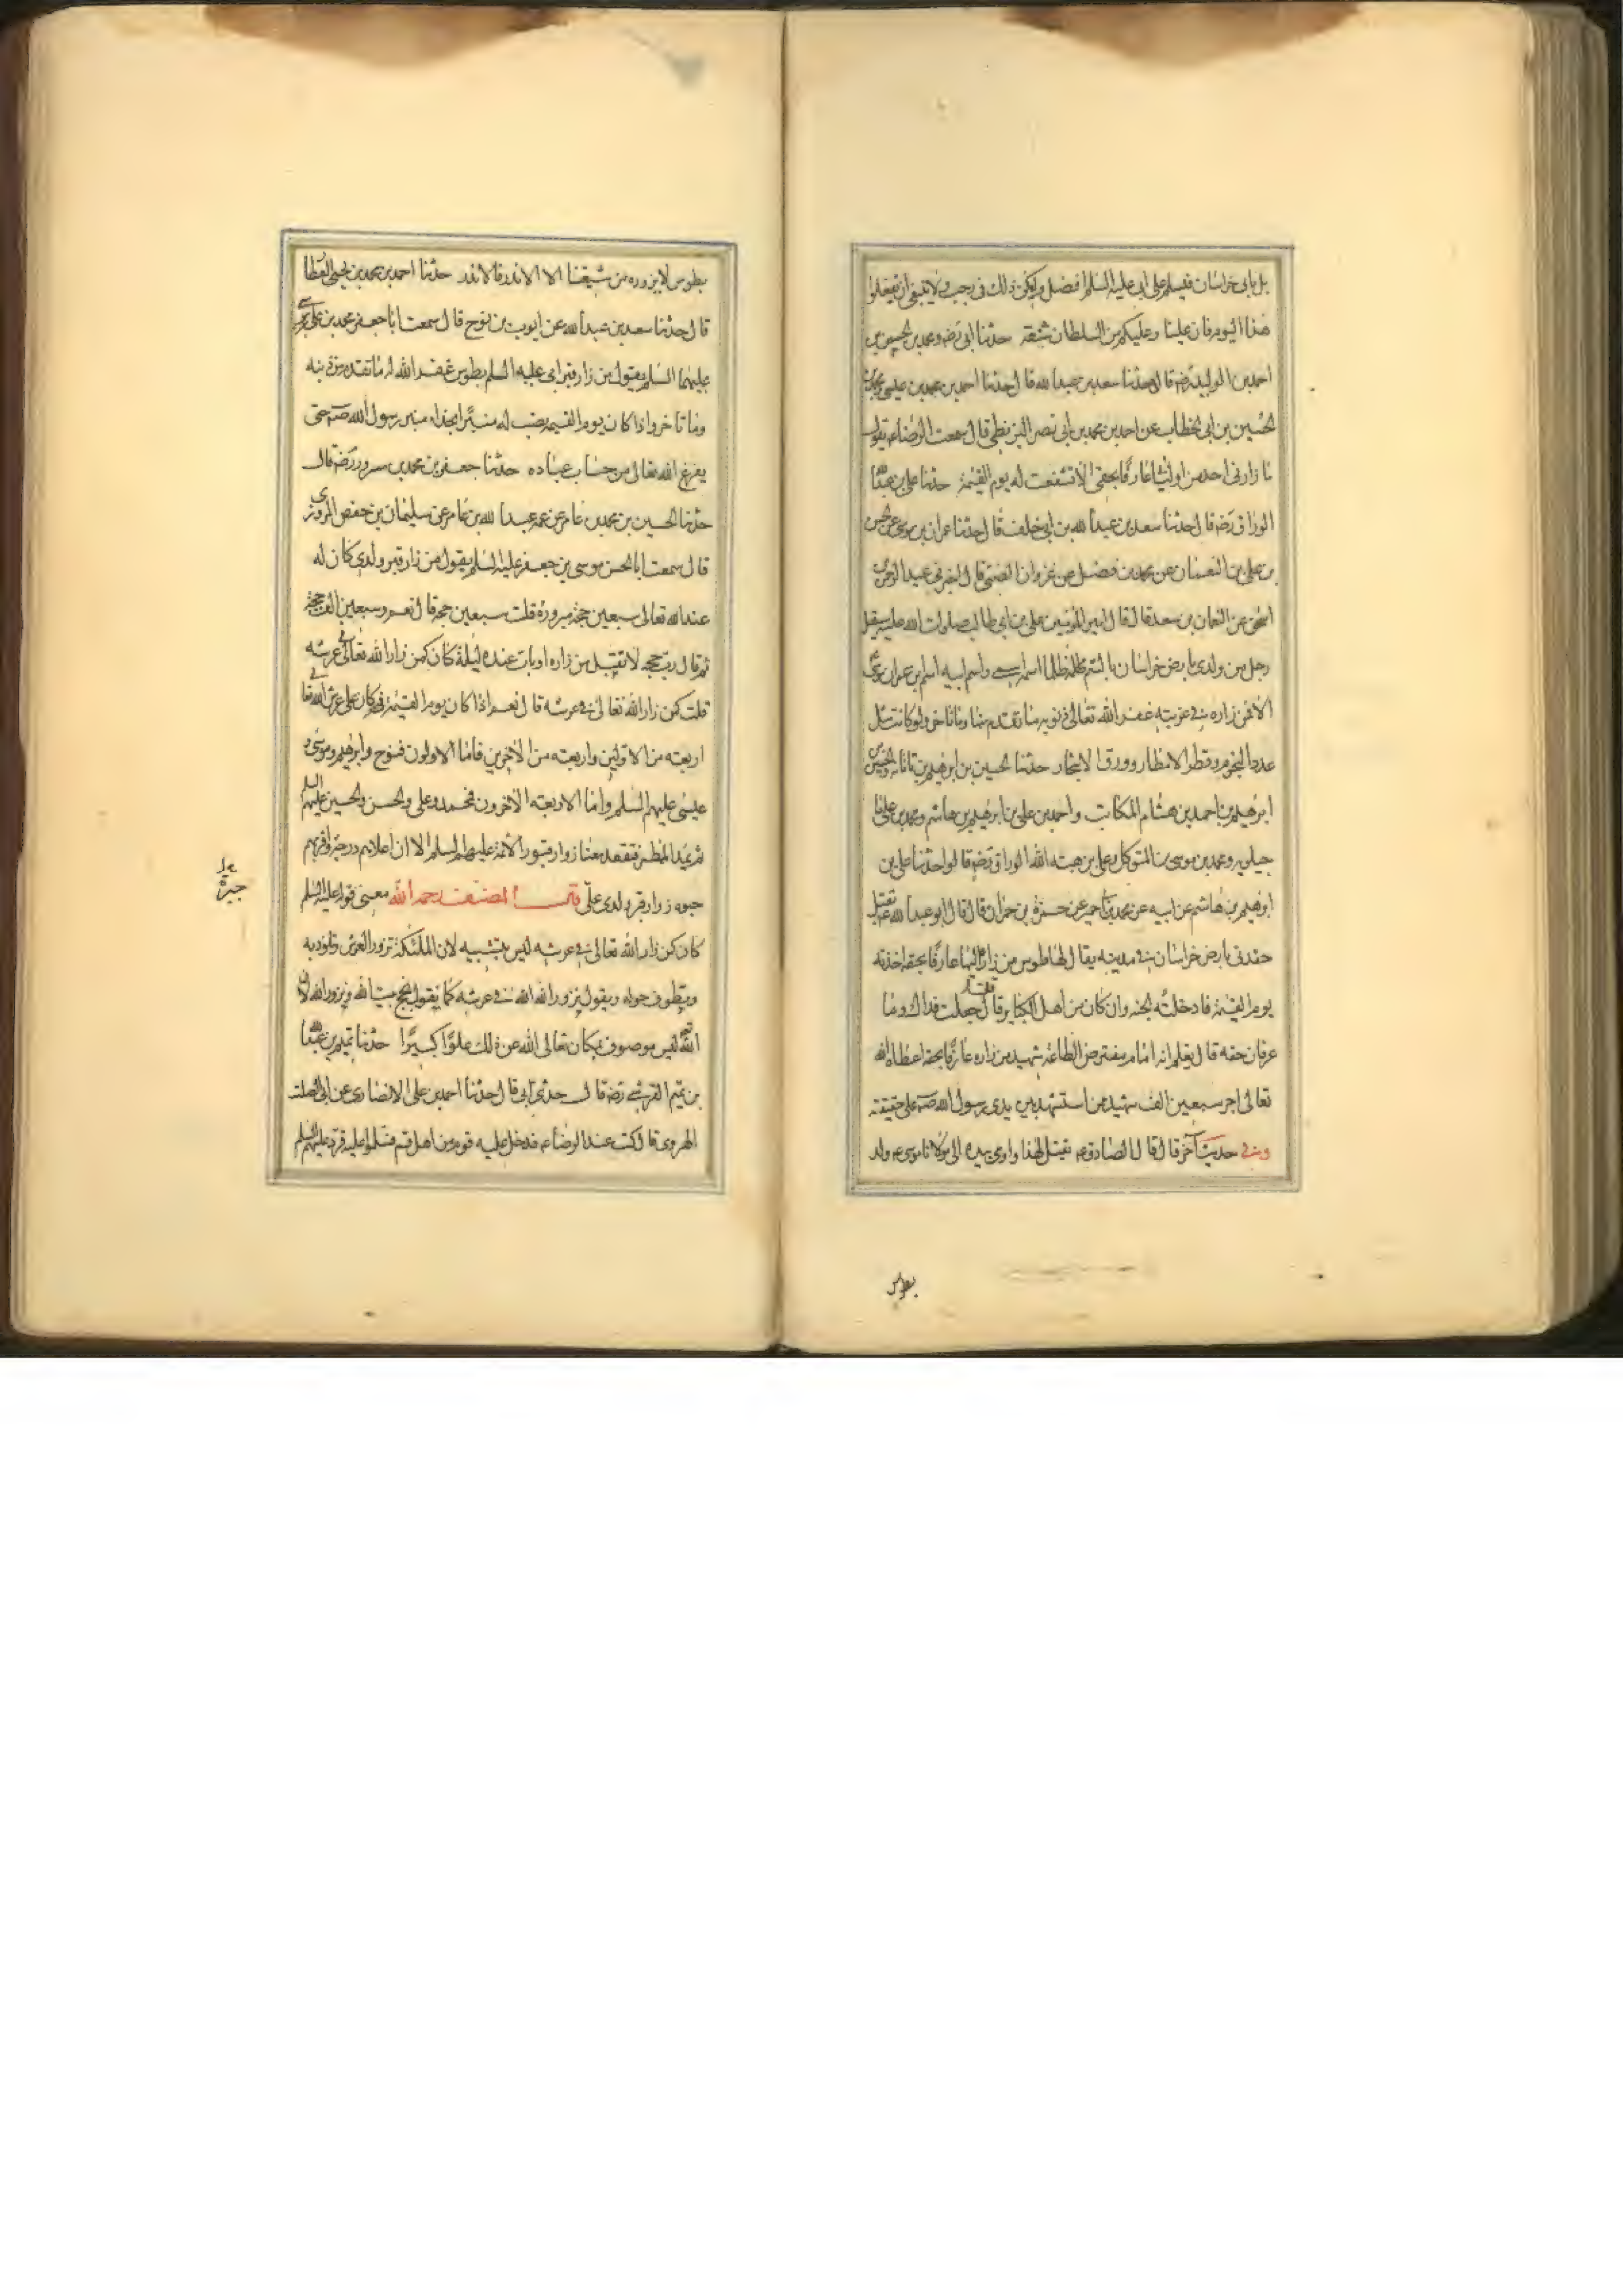 بل يأتى خراسان فيسلم على ابى عليه السلم افضل وليكن ذلك فى رجب ولا ينبغى ان تفعلوا
هذا اليوم فان علينا وعليكم من السلطان شنعة حدثنا ابى رضه ومحمد بن الحسن بن
احمد بن الوليد رضه قالا حدثنا سعد بن عبد الله قال حدثنا احمد بن محمد بن عيسى ومحمد بن
الحسين بن ابى الخطاب عن احمد بن محمد بن ابى نصر البزنطى قال سمعت الرضاء يقول
ما زارنى احد من اوليائى عارفا بحقى الا تشفعت له يوم القيمة حدثنا على بن عبد الله
الوراق رضه قال حدثنا سعد بن عبد الله بن ابى خلف قال حدثنا عمران بن موسى عن الحسن
بن على بن النعمان عن محمد بن فضيل عن غزوان الضبى قال اخبرنى عبد الرحمن بن
اسحق عن النعمان بن سعد قال قال امير المؤمنين على بن ابى طالب صلوات الله عليه سيقتل
رجل من ولدى بارض خراسان بالسم ظلما اسمه اسمى واسم ابيه اسم بن عمران موسى
الا فمن زاره فى غربته غفر الله تعالى ذنوبه ما تقدم منها وما تاخر ولو كانت مثل
عدد النجوم وقطر الامطار وورق الاشجار حدثنا الحسين بن ابرهيم بن تاتانه والحسين بن
ابرهيم بن احمد بن هشام المكاتب واحمد بن على بن ابرهيم بن هاشم ومحمد بن على ما
جيلويه ومحمد بن موسى بن المتوكل وعلى بن هبة الله الوراق رضه قالوا حدثنا على بن
ابرهيم بن هاشم عن ابيه عن محمد بن ابى عمير عن حمزة بن حمران قال قال ابو عبد الله ع تقتل
حفدتى بارض خراسان فى مدينة يقال لها طوس من زاره اليها عارفا بحقه اخذته
يوم القيمة فادخلته الجنة وان كان من اهل الكباير قال قلت جعلت فداك وما
عرفان حقه قال يعلم انه امام مفترض الطاعة شهيد من زاره عارفا بحقه اعطاه الله
تعالى اجر سبعين الف شهيد ممن استشهد بين يدى رسول الله صه على حقيقة
وفى حديث آخر قال قال الصادق ع يقتل لهذا واومى بيده الى مولانا موسى ع ولد
بطوس
بطوس لا يزوره من شيعتنا الا الاندر فالاندر حدثنا احمد بن محمد بن يحيى العطار
قال حدثنا سعد بن عبد الله عن ايوب بن نوح قال سمعت ابا جعفر محمد بن على بن موسى
عليهما السلم يقول من زار قبر ابى عليه السلم بطوس غفر الله له ما تقدم من ذنبه
وما تاخر واذا كان يوم القيمة يضب له منبرا بحذاء منبر رسول الله صه حتى
يفرغ الله تعالى من حساب عباده حدثنا جعفر بن محمد بن مسرور رضه قال
حدثنا الحسين بن محمد بن عامر عن عمه عبد الله بن عامر عن سليمان بن حفص المروزى
قال سمعت ابا الحسن موسى بن جعفر عليه السلم يقول من زار قبر ولدى كان له
عند الله تعالى سبعين حجة مبرورة قلت سبعين حجة قال نعم وسبعين الف حجة
ثم قال رب حجة لا تقبل من زاره او بات عنده ليلة كان كمن زار الله تعالى فى عرشه
قلت كمن زار الله تعالى فى عرشه قال نعم اذا كان يوم القيمة كان على عرش الله تعالى
اربعة من الاولين واربعة من الآخرين فاما الاولون فنوح وابرهيم وموسى و
عيسى عليهم السلم واما الاربعة الآخرون فمحمد وعلى والحسن والحسين عليهم السلم
ثم يمد المطمر فتقعد معنا زوار قبور الائمة عليهم السلم الا ان اعلاهم درجة واقربهم
حبوه زوار قبر ولدى على قال المصنف رحمه الله معنى قوله عليه السلم
كان كمن زار الله تعالى فى عرشه ليس بتشبيه لان الملئكة تزور العرش وتلوذ به
وتطوف حوله ويقول نزور الله الله فى عرشه كما يقول نحج بيت الله ونزور الله لان
الله ليس موصوف بمكان تعالى الله عن ذلك علوا كبيرا حدثنا تميم بن عبد الله
بن تميم القرشى رضه قال حدثنى ابى قال حدثنا احمد بن على الانصارى عن ابى الصلت
الهروى قال كنت عند الرضاء فدخل عليه قوم من اهل قم فسلموا عليه فرد عليهم السلم